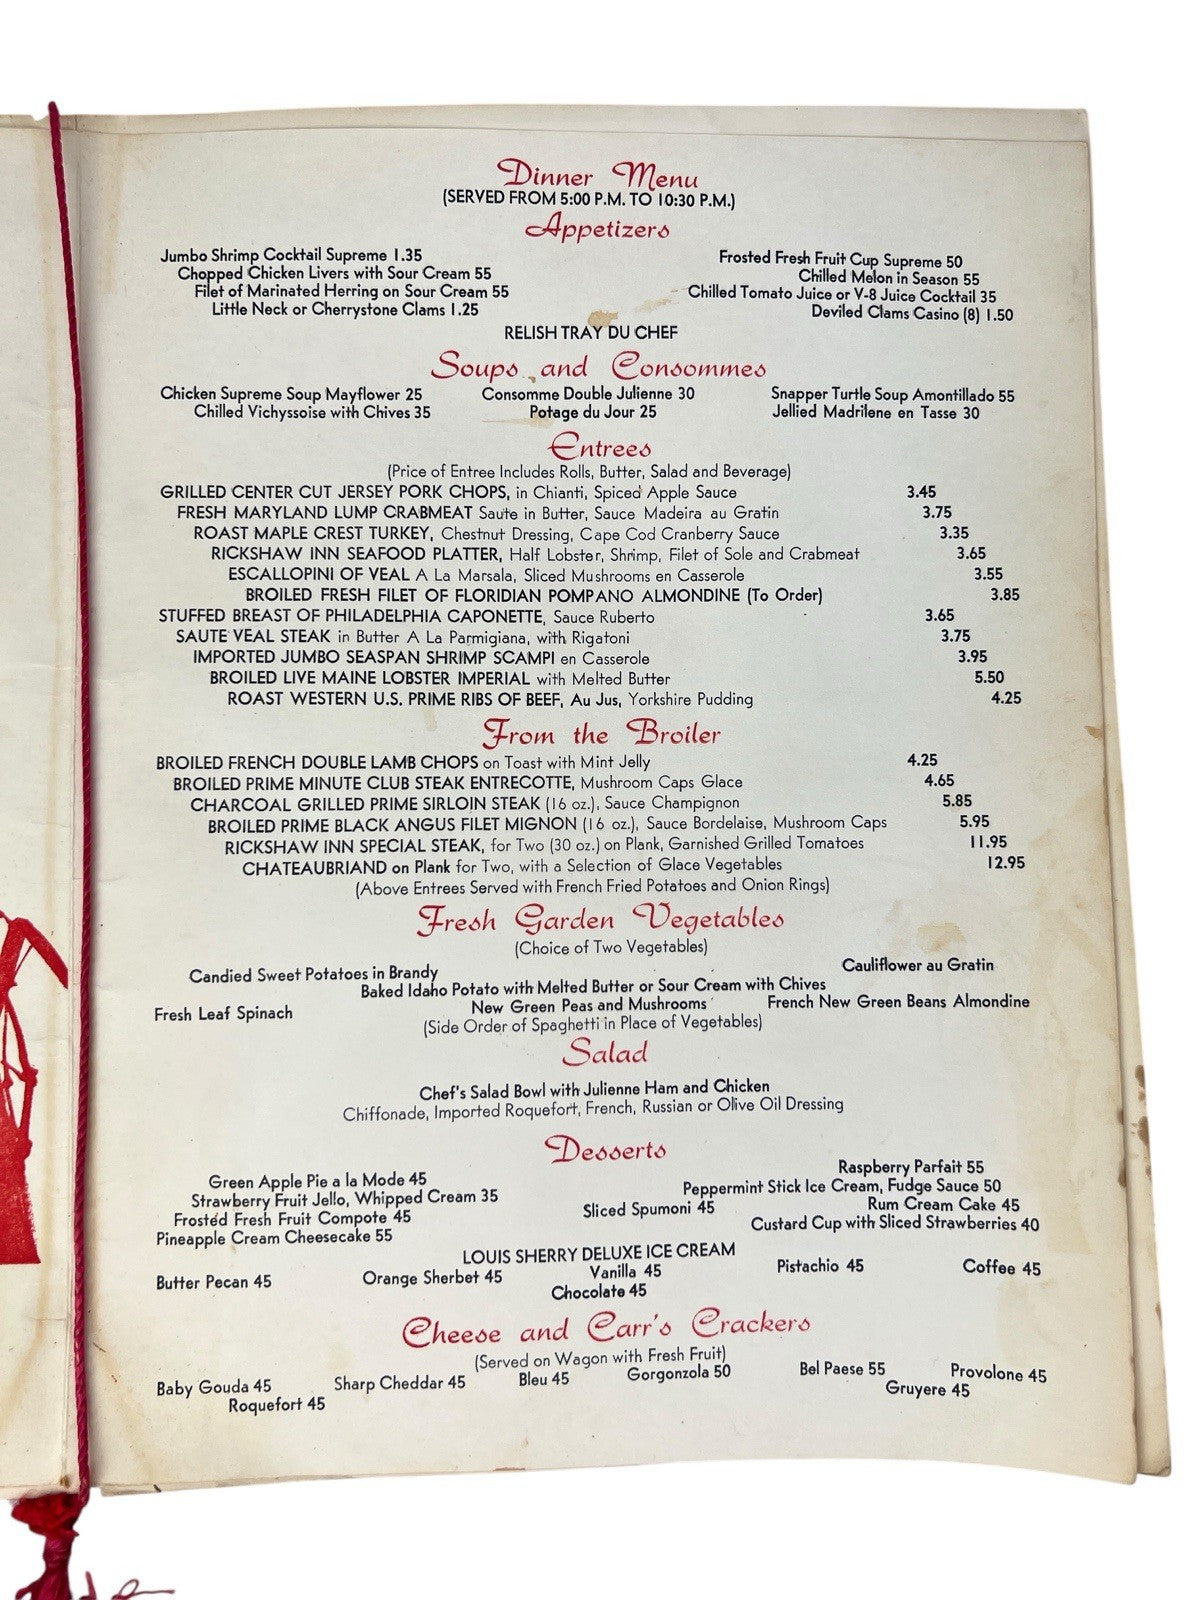 Dinner Menu
(SERVED FROM 5:00 P.M. TO 10:30 P.M.)
Appetizers
Jumbo Shrimp Cocktail Supreme 1.35
Chopped Chicken Livers with Sour Cream 55
Filet of Marinated Herring on Sour Cream 55
Little Neck or Cherrystone Clams 1.25
Frosted Fresh Fruit Cup Supreme 50
Chilled Melon in Season 55
Chilled Tomato Juice or V-8 Juice Cocktail 35
Deviled Clams Casino (8) 1.50
RELISH TRAY DU CHEF
Soups and Consommes
Chicken Supreme Soup Mayflower 25
Chilled Vichyssoise with Chives 35
Consomme Double Julienne 30
Potage du Jour 25
Snapper Turtle Soup Amontillado 55
Jellied Madrilene en Tasse 30
Entrees
(Price of Entree Includes Rolls, Butter, Salad and Beverage)
GRILLED CENTER CUT JERSEY PORK CHOPS, in Chianti, Spiced Apple Sauce 3.45
FRESH MARYLAND LUMP CRABMEAT Saute in Butter, Sauce Madeira au Gratin 3.75
ROAST MAPLE CREST TURKEY, Chestnut Dressing, Cape Cod Cranberry Sauce 3.35
RICKSHAW INN SEAFOOD PLATTER, Half Lobster, Shrimp, Filet of Sole and Crabmeat 3.65
ESCALLOPINI OF VEAL A La Marsala, Sliced Mushrooms en Casserole 3.55
BROILED FRESH FILET OF FLORIDIAN POMPANO ALMONDINE (To Order) 3.85
STUFFED BREAST OF PHILADELPHIA CAPONETTE, Sauce Ruberto 3.65
SAUTE VEAL STEAK in Butter A La Parmigiana, with Rigatoni 3.75
IMPORTED JUMBO SEASPAN SHRIMP SCAMPI en Casserole 3.95
BROILED LIVE MAINE LOBSTER IMPERIAL with Melted Butter 5.50
ROAST WESTERN U.S. PRIME RIBS OF BEEF, Au Jus, Yorkshire Pudding 4.25
From the Broiler
BROILED FRENCH DOUBLE LAMB CHOPS on Toast with Mint Jelly 4.25
BROILED PRIME MINUTE CLUB STEAK ENTRECOTTE, Mushroom Caps Glace 4.65
CHARCOAL GRILLED PRIME SIRLOIN STEAK (16 oz.), Sauce Champignon 5.85
BROILED PRIME BLACK ANGUS FILET MIGNON (16 oz.), Sauce Bordelaise, Mushroom Caps 5.95
RICKSHAW INN SPECIAL STEAK, for Two (30 oz.) on Plank, Garnished Grilled Tomatoes 11.95
CHATEAUBRIAND on Plank for Two, with a Selection of Glace Vegetables 12.95
(Above Entrees Served with French Fried Potatoes and Onion Rings)
Fresh Garden Vegetables
(Choice of Two Vegetables)
Candied Sweet Potatoes in Brandy
Cauliflower au Gratin
Baked Idaho Potato with Melted Butter or Sour Cream with Chives
Fresh Leaf Spinach
New Green Peas and Mushrooms
French New Green Beans Almondine
(Side Order of Spaghetti in Place of Vegetables)
Salad
Chef's Salad Bowl with Julienne Ham and Chicken
Chiffonade, Imported Roquefort, French, Russian or Olive Oil Dressing
Desserts
Green Apple Pie a la Mode 45
Strawberry Fruit Jello, Whipped Cream 35
Frosted Fresh Fruit Compote 45
Pineapple Cream Cheesecake 55
Sliced Spumoni 45
Raspberry Parfait 55
Peppermint Stick Ice Cream, Fudge Sauce 50
Rum Cream Cake 45
Custard Cup with Sliced Strawberries 40
LOUIS SHERRY DELUXE ICE CREAM
Butter Pecan 45
Orange Sherbet 45
Vanilla 45
Chocolate 45
Pistachio 45
Coffee 45
Cheese and Carr's Crackers
(Served on Wagon with Fresh Fruit)
Baby Gouda 45
Sharp Cheddar 45
Bleu 45
Gorgonzola 50
Bel Paese 55
Provolone 45
Roquefort 45
Gruyere 45